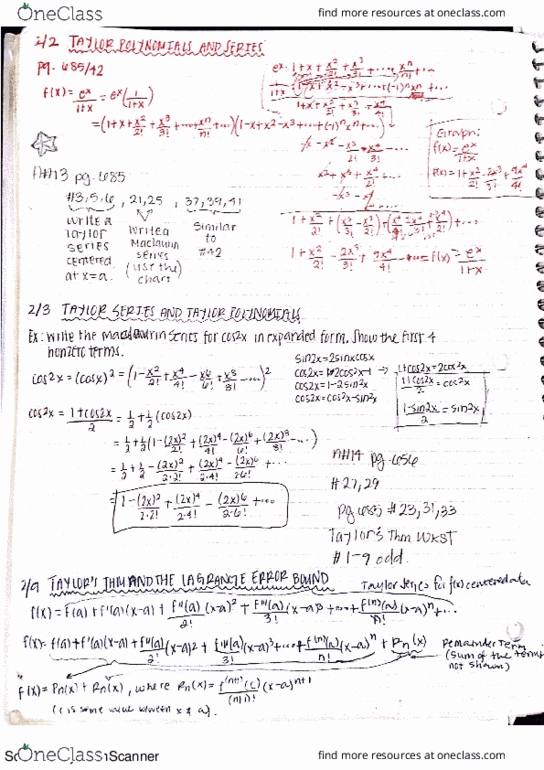 OneClass
find more resources at oneclass.com
2/2 TAYLOR POLYNOMIALS AND SERIES
pg. 685/42
f(x) = e^x/(1+x) = e^x(1/(1+x))
= (1+x+x²/2!+x³/3!+...+xⁿ/n!+...)(1-x+x²-x³+...+(-1)ⁿxⁿ+...)
ex: 1+x+x²/2!+x³/3!+...+xⁿ/n!+...
Graph:
f(x)=e^x/(1+x)
1+x²/2!-2x³/3!+9x⁴/4!-...=f(x)=e^x/(1+x)
#13 pg. 685
#3,5,6, 21,25, 37,39,41
write a Taylor series centered at x=a.
write a Maclaurin series (use the chart)
similar to #42
2/3 TAYLOR SERIES AND TAYLOR POLYNOMIALS
Ex: write the maclaurin series for cos²x in expanded form. Show the first 4
nonzero terms.
cos²x = (cosx)² = (1-x²/2!+x⁴/4!-x⁶/6!+x⁸/8!-...)²
sin2x=2sinxcosx
cos2x=2cos²x-1
cos2x=1-2sin²x
cos2x=cos²x-sin²x
1+cos2x=2cos²x
(1+cos2x)/2=cos²x
cos²x = (1+cos2x)/2 = 1/2+1/2(cos2x)
= 1/2+1/2(1-(2x)²/2!+(2x)⁴/4!-(2x)⁶/6!+(2x)⁸/8!-...)
= 1/2+1/2-(2x)²/2·2!+(2x)⁴/2·4!-(2x)⁶/2·6!+...
= 1-(2x)²/2·2!+(2x)⁴/2·4!-(2x)⁶/2·6!+...
#14 pg. 656
#27,29
pg 685 #23,31,33
Taylor's Thm WKST
#1-9 odd
2/9 TAYLOR'S THM AND THE LAGRANGE ERROR BOUND
Taylor series for f(x) centered at a
f(x)=f(a)+f'(a)(x-a)+f''(a)/2!(x-a)²+f'''(a)/3!(x-a)³+...+f⁽ⁿ⁾(a)/n!(x-a)ⁿ+...
f(x)=f(a)+f'(a)(x-a)+f''(a)/2!(x-a)²+f'''(a)/3!(x-a)³+...+f⁽ⁿ⁾(a)/n!(x-a)ⁿ+Rn(x)
Remainder Term
(sum of the terms
not shown)
f(x)=Pn(x)+Rn(x), where Rn(x)=f⁽ⁿ⁺¹⁾(c)/(n+1)!(x-a)ⁿ⁺¹
(c is some value between x & a).
OneClass
Scanner
find more resources at oneclass.com